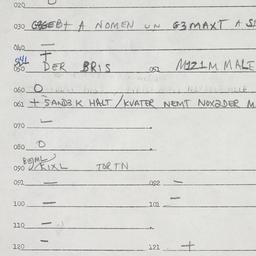 020
030 GEBT A NOMEN UN G3MAXT A
040 —
050 DER BRIS 051 M121M MALE
060 O
061 + 5AND3K HALT / KVATER NEMT NOX3DER M
070 —
080 O
090 KIXL TORTN
091 — 092 —
100 — 101 —
110 —
120 — 121 +